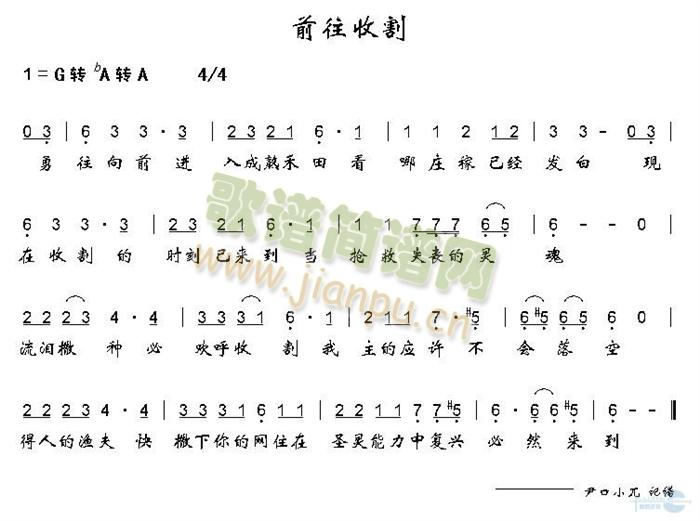 前往收割
1=G转ᵇA转A 4/4
0 3 | 6 3 3·3 | 2 3 2 1 6·1 | 1 1 2 1 2 | 3 3 - 0 3 |
勇 往 向 前 进 入成熟禾 田 看 哪 庄 稼 已经 发 白 现
6 3 3·3 | 2 3 2 1 6·1 | 1 1 7 7 7 6 5 | 6 - - 0 |
在 收 割 的 时刻已来 到 当 抢 救 失丧的 灵 魂
2 2 2 3 4·4 | 3 3 3 1 6·1 | 2 1 7·#5 | 6 #5 6 5 6 0 |
流泪撒 种 必 欢呼收 割 我 主的应许 不 会 落 空
2 2 2 3 4·4 | 3 3 3 1 6 1 1 | 2 1 2 7 7 #5 | 6·6 #5 | 6 - - ‖
得人的渔夫 快 撒下你的网住在 圣灵能力中复兴 必 然 来 到
歌谱简谱网
www.jianpu.cn
尹口小兀 记谱